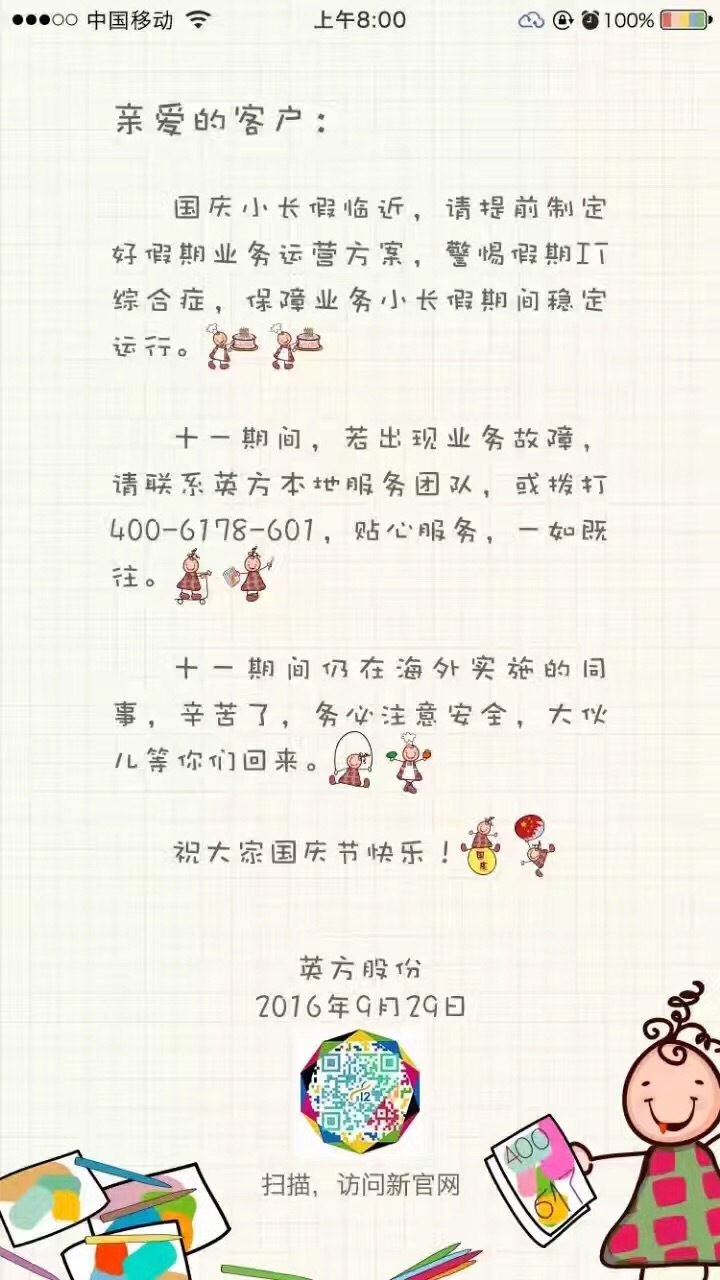 中国移动 上午8:00 100%
亲爱的客户：
国庆小长假临近，请提前制定
好假期业务运营方案，警惕假期IT
综合症，保障业务小长假期间稳定
运行。
十一期间，若出现业务故障，
请联系英方本地服务团队，或拨打
400-6178-601，贴心服务，一如既
往。
十一期间仍在海外实施的同
事，辛苦了，务必注意安全，大伙
儿等你们回来。
祝大家国庆节快乐！
国庆
英方股份
2016年9月29日
i2
扫描，访问新官网
400
61